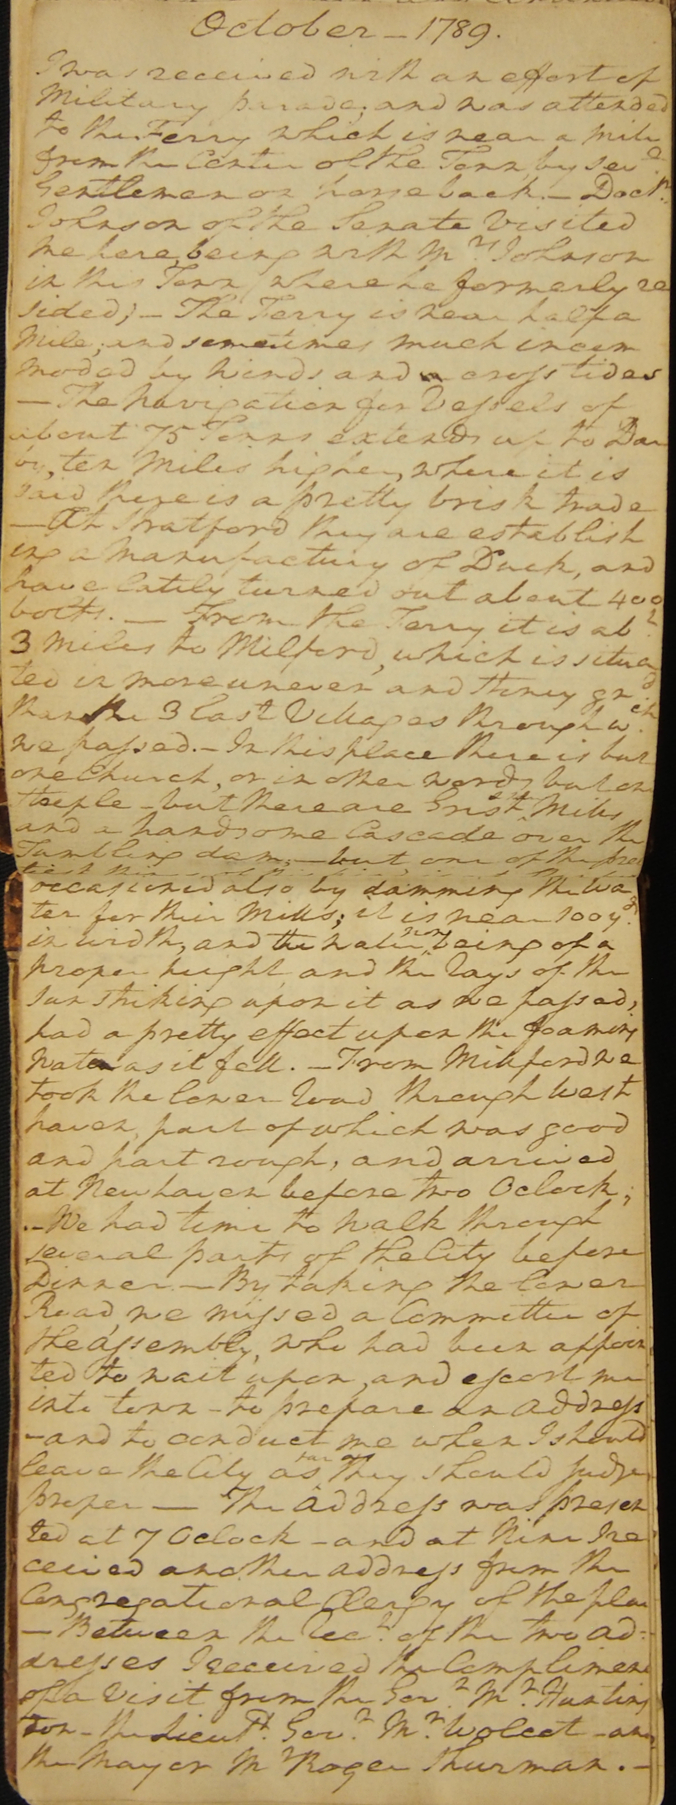 October – 1789.
I was received with an effort of
Military parade; and was attended
to the Ferry which is near a mile
from the Center of the Town, by sevl
Gentlemen on horseback. – Doctr.
Johnson of the Senate visited
me here, being with Mrs. Johnson
in this Town (where he formerly re
sided). – The Ferry is near half a
Mile; and sometimes much incom
moded by Winds and cross tides
– The Navigation for Vessels of
about 75 Tonns extends up to Dar
by, ten Miles higher, where it is
said there is a pretty brisk trade
– At Stratford they are establish
ing a Manufactury of Duck, and
have lately turned out about 400
bolts. – From the Ferry it is abt.
3 miles to Milford, which is situa
ted in more uneven and stony grd
than the 3 last Villages through wch.
we passed. – In this place there is but
one Church, or in other words but one
steeple – but there are Grist Mills
and a handsome Cascade over the
Tumbling dam; – but one of the
occasioned also by damming the Wa
ter for their Mills; it is near 100 yds.
in width, and the water now being of a
proper height, and the Rays of the
Sun striking upon it as we passed,
had a pretty effect upon the foaming
water as it fell. – From Milford we
took the lower Road through West
haven, part of which was good
and part rough, and arrived
at New haven before two Oclock;
– We had time to Walk through
several parts of the City before
Dinner – By taking the lower
Road, we missed a Committee of
the Assembly, who had been appoin
ted to wait upon, and escort me
into town – to prepare an Address
– and to conduct me when I should
leave the City as far as they should judge
proper – The Address was presen
ted at 7 Oclock – and at Nine I re
ceived another address from the
Congregational Clergy of the place
– Between the rect. of the two Ad=
dresses I received the Compliment
of a Visit from the Govr. Mr. Hunting
ton – the Lieutt. Govr. Mr. Wolcot – and
the Mayor Mr Roger Shurman. –